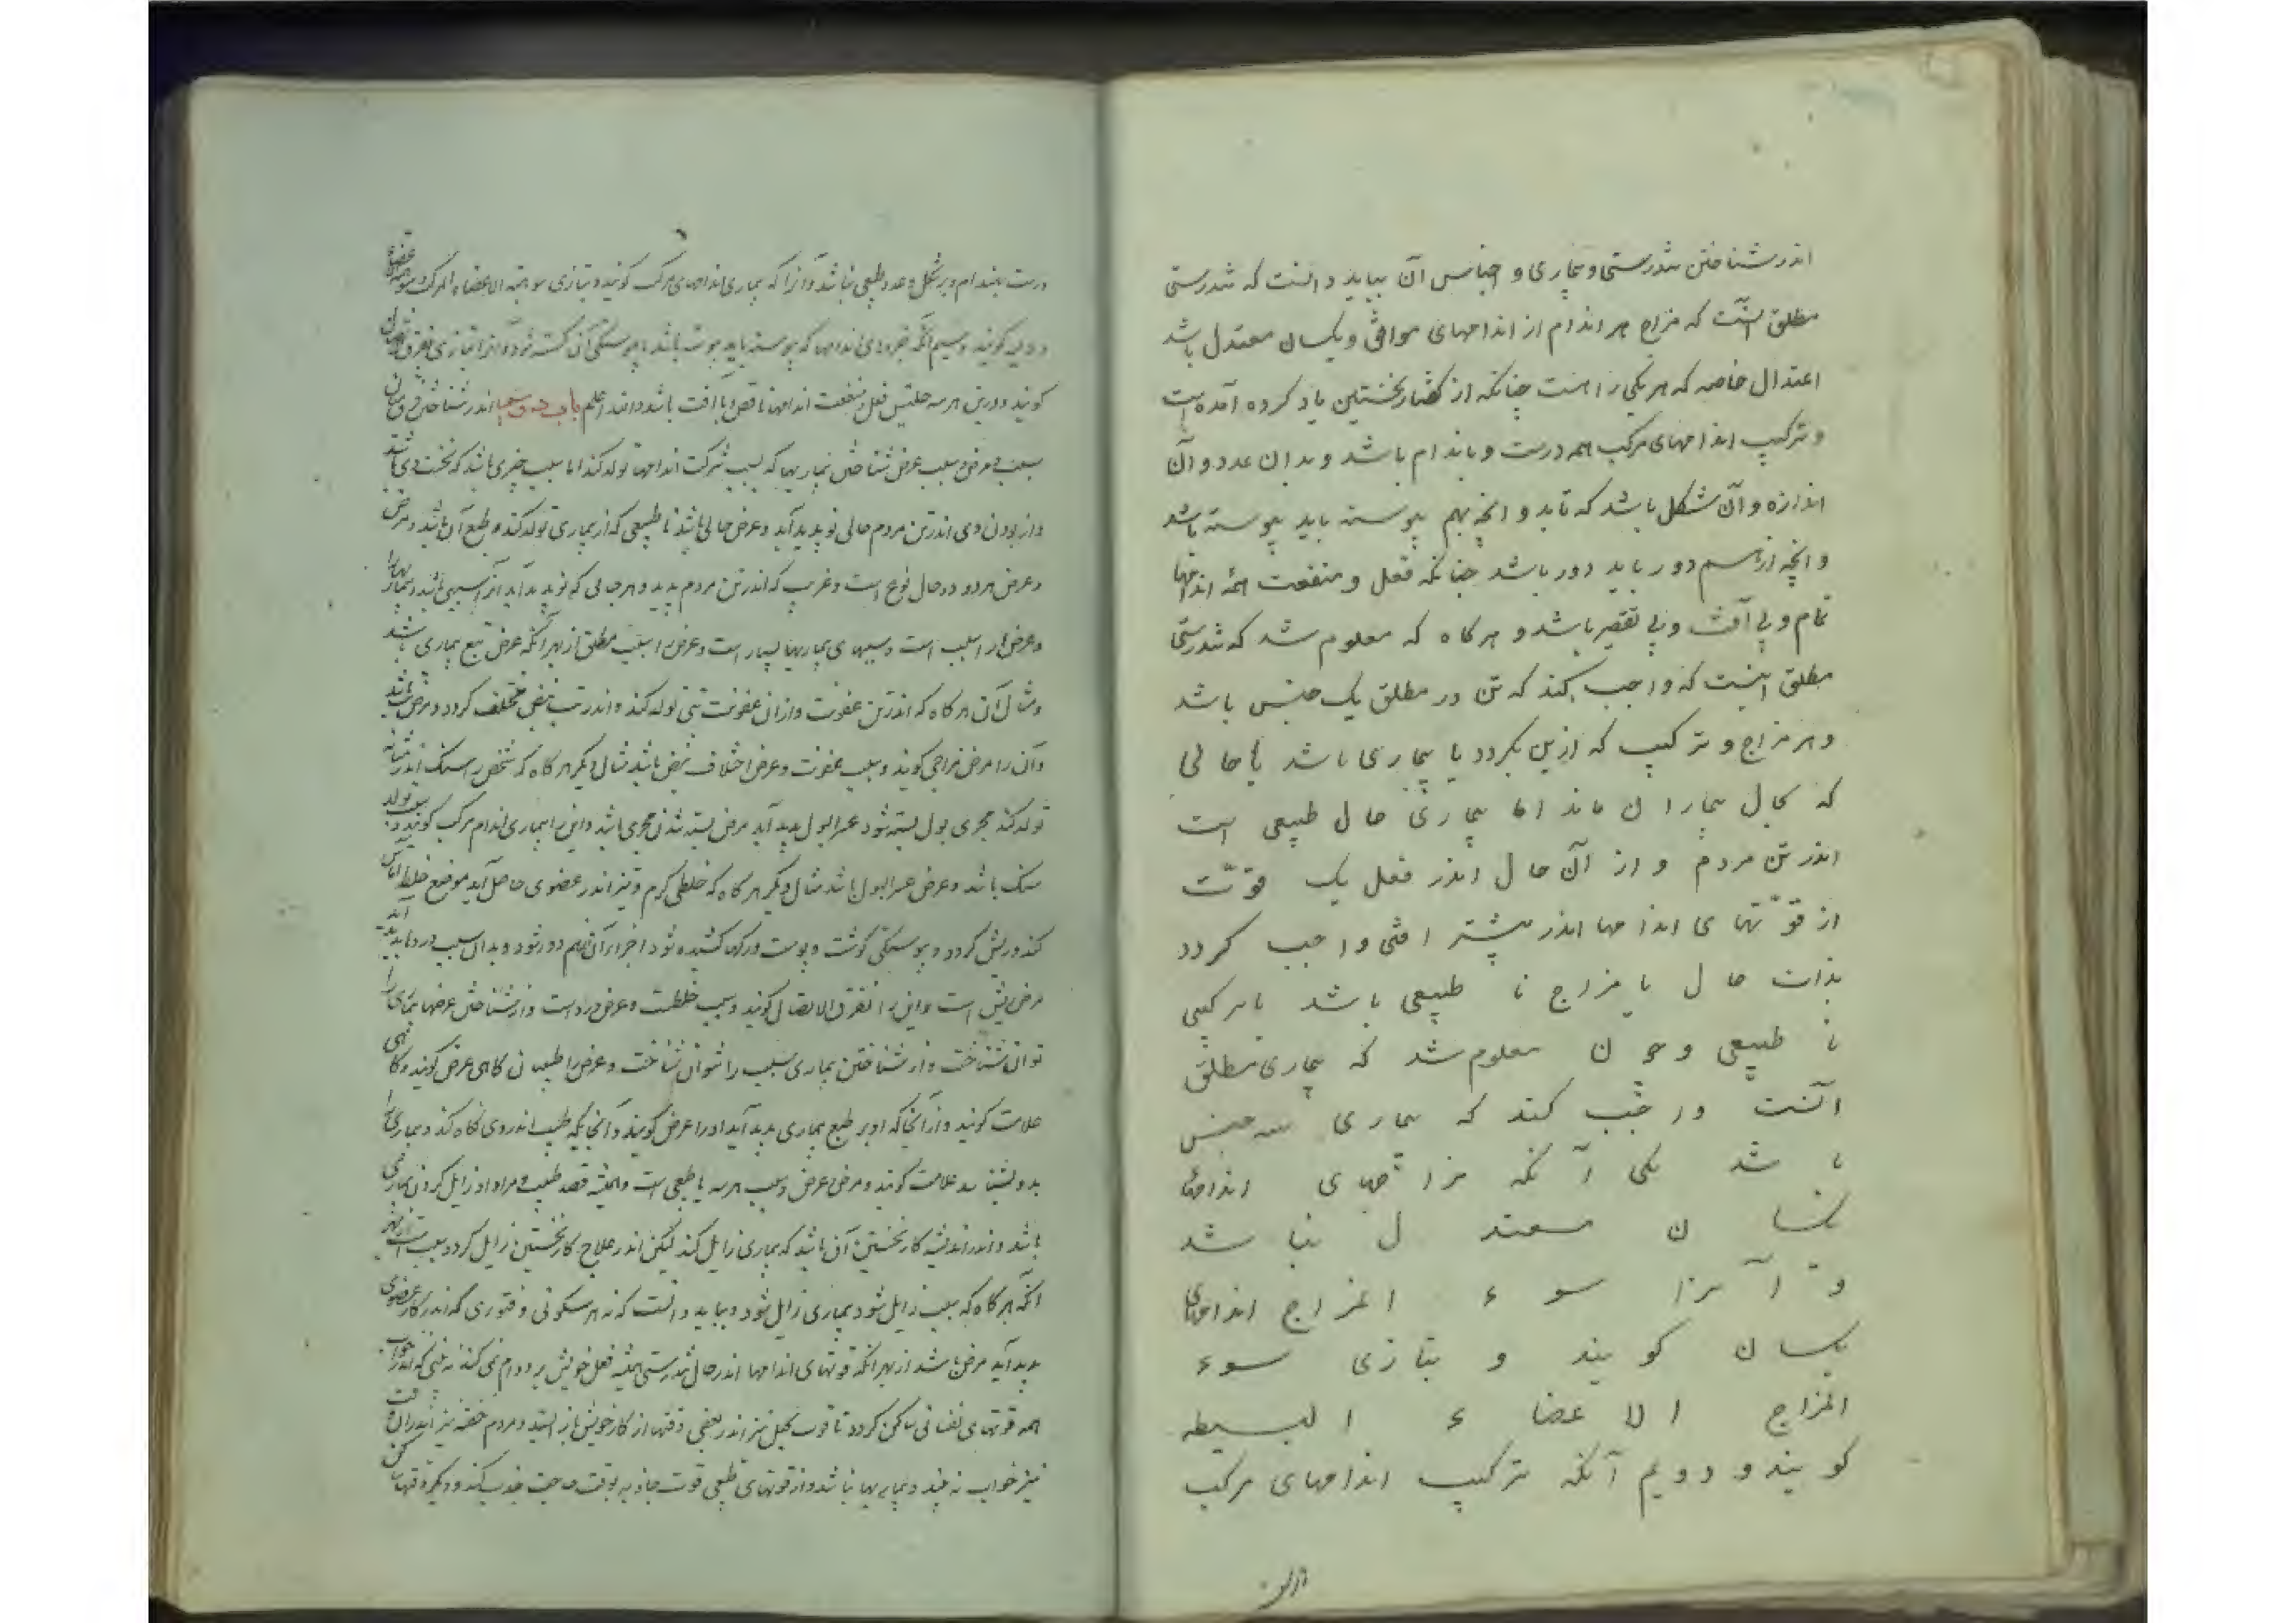 اندر شناختن تندرستی و بیماری و اجناس آن بباید دانست که تندرستی
مطلق آنست که مزاج هر اندام از اندامهای موافق و یکسان معتدل باشد
اعتدال خاصه که هر یکی را هست چنانکه از گفتار نخستین یاد کرده آمده است
و ترکیب اندامهای مرکب همه درست و باندام باشد و بدان عدد و آن
اندازه و آن شکل باشد که باید و انچه بهم پیوسته باید پیوسته باشد
و انچه از هم دور باید دور باشد چنانکه فعل و منفعت همه اندامها
تمام و بی آفت و بی تقصیر باشد و هرکاه که معلوم شد که تندرستی
مطلق اینست که واجب کند که تن در مطلق یک جنس باشد
و هر مزاج و ترکیب که ازین بکردد یا بیماری باشد یا حالی
که بحال بیماران ماند اما بیماری حال طبیعی است
اندر تن مردم و از آن حال اندر فعل یک قوّت
از قوّتهای اندامها اندر بیشتر افتی واجب کردد
بذات حال یا مزاج نا طبیعی باشد یا ترکیبی
نا طبیعی و چون معلوم شد که بیماری مطلق
آنست واجب کند که بیماری سه جنس
باشد یکی آنکه مزاجهای اندامهاء
یکسان معتدل نباشد
و آنرا سوء المزاج اندامهای
یکسان کویند و بتازی سوء
المزاج الاعضاء البسیطه
کویند و دویم آنکه ترکیب اندامهای مرکب
درست بهندام و بر شکل و عدد طبیعی نباشد و آنرا که بیماری اندامهای مرکب کویند و بتازی سوء هیئة الاعضاء المرکبه
کویند و سیم آنکه جزوهای اندامها که پیوسته باید پیوسته باشد یا پیوستگی آن کسسته شود و آنرا بتازی تفرق
کویند و درین هر سه جنس فعل و منفعت اندامها ناقص و با آفت باشد والله اعلم باب اندر شناختن فرق میان
سبب و مرض و سبب عرض شناختن بیماریها که بسبب شرکت اندامها تولد کند اما سبب چیزی باشد که نخست وی باشد
و از بودن وی اندر تن مردم حالی نو پدید آید و عرض حالی باشد نا طبیعی که از بیماری تولد کند و طبع آن باشد و مرض
و عرض هر دو دو حال نوع است و غریب که اندر تن مردم پدید و هر حالی که نو پدید آید آنرا سببی باشد و بیماریها را
و عرض را سبب است و سببهای بیماریها بسیار است و عرض را سبب مطلق از بهر آنکه عرض تبع بیماری باشد
و مثال آن هرکاه که اندر تن عفونت و از آن عفونت تبی تولد کند و اندر تب نبض مختلف کردد و مرض تب باشد
و آن را مرض مزاجی کویند و سبب عفونت و عرض اختلاف نبض باشد مثال دیگر هرکاه که شخص را سنک اندر مثانه
تولد کند مجری بول بسته شود عسر البول پدید آید مرض بسته شدن مجری باشد و این را بیماری اندام مرکب کویند و سبب تولد
سنک باشد و عرض عسر البول باشد مثال دیگر هرکاه که خلطی کرم و تیز اندر عضوی حاصل آید موضع خلط آماس
کند و ریش کردد و پیوستگی کوشت و پوست و رکها کشیده شود اجزاء آن از هم دور شود و بدان سبب درد پدید آید
مرض ریش است و این را تفرق الاتصال کویند و سبب خلطست و عرض درد است و از شناختن عرضها بیماری را
توان شناخت و از شناختن بیماری سبب را توان شناخت و عرض را طبیبان کاهی عرض کویند و کاهی
علامت کویند و از آنجا که او بر طبع بیماری پدید آید او را عرض کویند و آنجا که طبیب اندر وی نکاه کند و بیماری را
بدو بشناسد علامت کویند و مرض و عرض و سبب هر سه نا طبیعی است و همیشه قصد طبیب و مراد او زایل کردن بیماری
باشد و اندر اندیشه کار نخستین آن باشد که بیماری زایل کند لیکن اندر علاج کار نخستین زایل کردن سبب است از بهر
آنکه هرکاه که سبب زایل شود بیماری زایل شود و بباید دانست که نه هر سکونی و فتوری که اندر کار عضوی
پدید آید مرض باشد از بهر آنکه قوتهای اندامها اندر حال تندرستی همیشه فعل خویش بر دوام نمی کند نه بینی که اندر خواب
همه قوتهای نفسانی ساکن کردد تا قوت تخیل نیز اندر بعضی وقتها از کار خویش باز ایستد و مردم خفته نیز اندران وقت
نیز خواب نه بیند و بیماریها نباشد و از قوتهای طبیعی قوت جاذبه بوقت حاجت جذب کند و دیگر وقتها ساکن